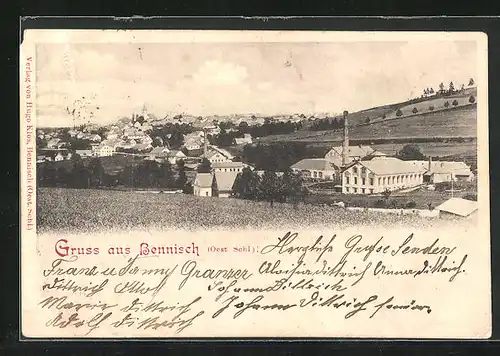 Verlag von Hugo Klos, Bennisch (Oest. Schl.)
Gruss aus Bennisch (Oest. Schl.)!
Herzliche Grüsse Senden
Franz u Fanny Granzer Aloisia dittrich Anna dittrich.
dittrich Johann Dittrich
Marie dittrich Johann dittrich senior.
Adolf dittrich